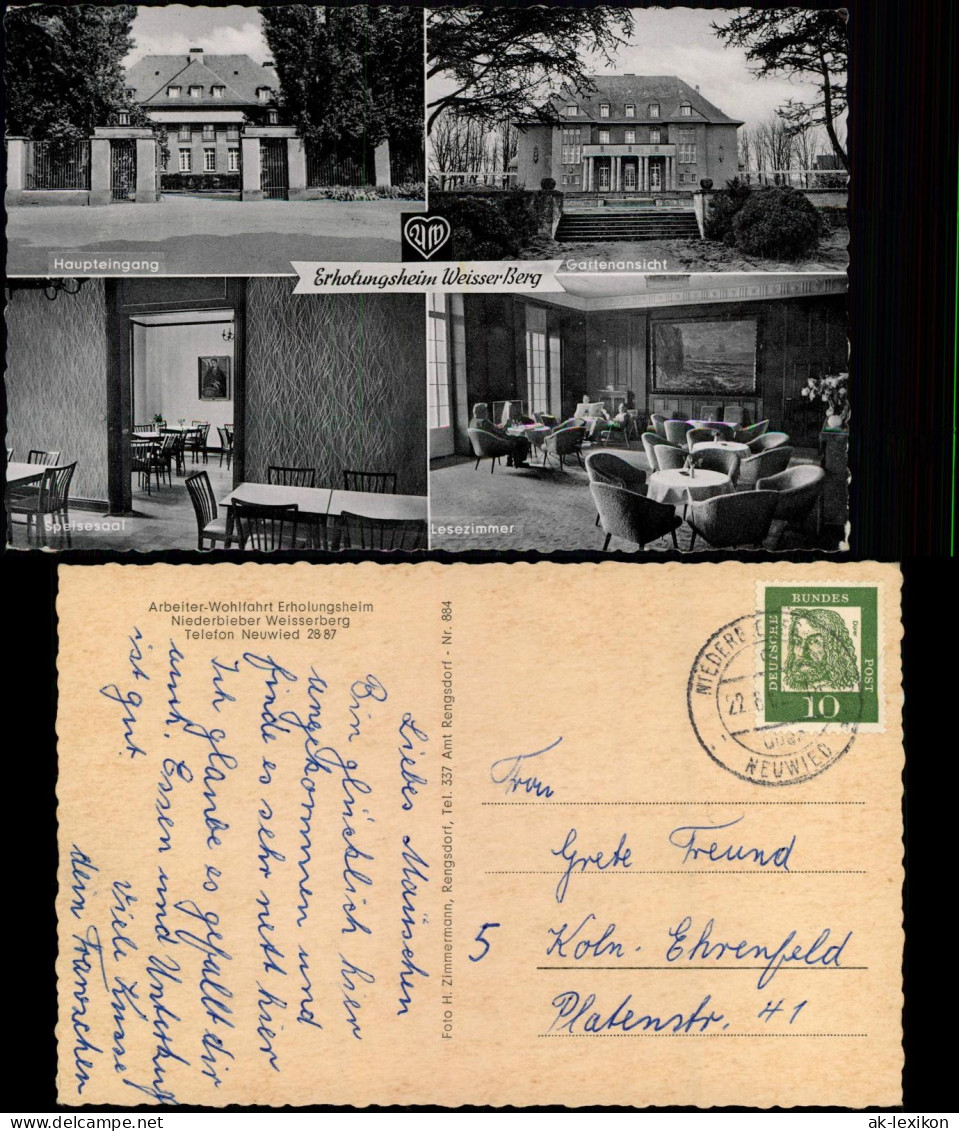 Haupteingang
AW
Gartenansicht
Erholungsheim Weisser Berg
Speisesaal
Lesezimmer
Arbeiter-Wohlfahrt Erholungsheim
Niederbieber Weisserberg
Telefon Neuwied 28 87
Liebes Mäuschen
Bin glücklich hier
ungekommen und
finde es sehr nett hier
Ich glaube es gefällt dir
auch. Essen und Unterkunft
ist gut.
Viele Küsse
dein
Foto H. Zimmermann, Rengsdorf, Tel. 337 Amt Rengsdorf - Nr. 884
NIEDERB
22.8
NEUWIED
DEUTSCHE
BUNDES
POST
Dürer
10
Frau
Grete Freund
5
Köln-Ehrenfeld
Platenstr. 41
ak-lexikon